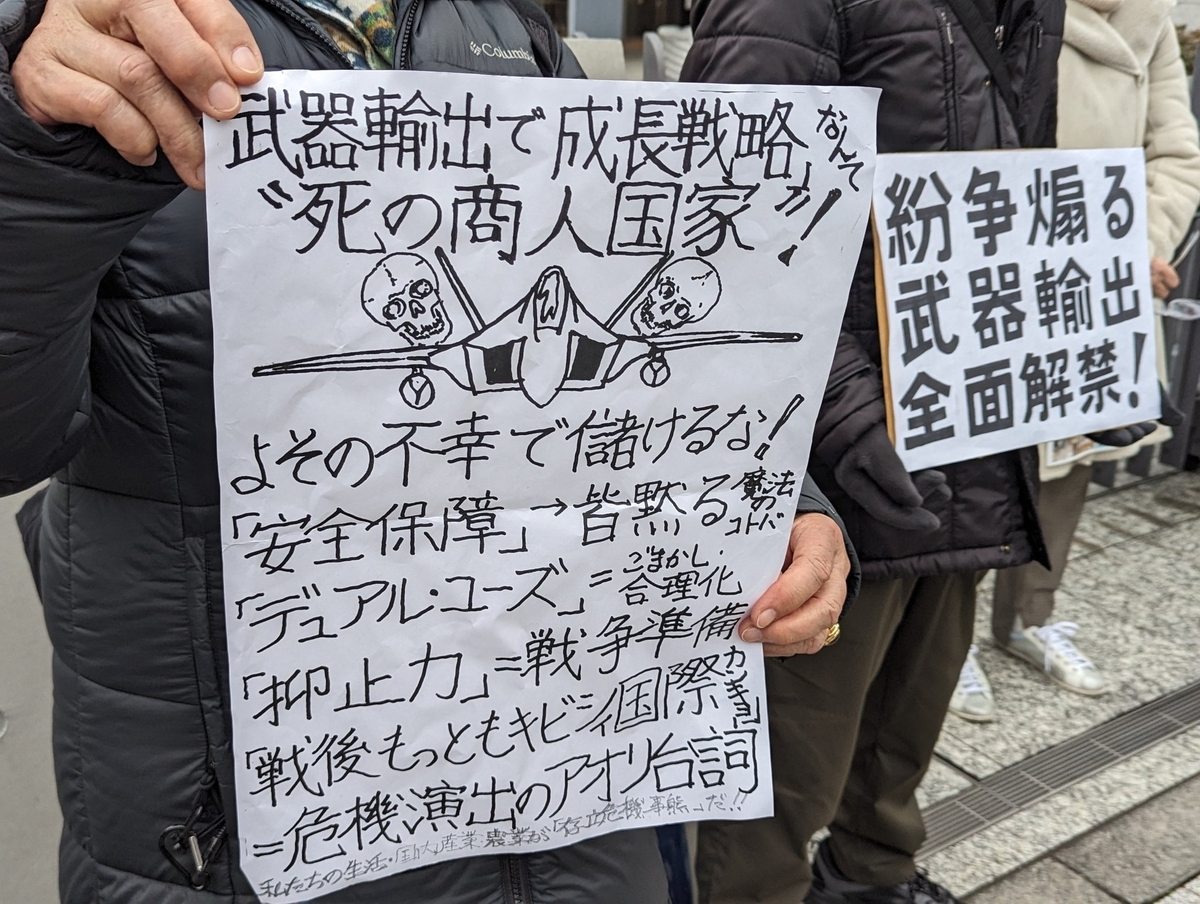 Columbia
武器輸出で成長戦略」なんて
〝死の商人国家〟!
よその不幸で儲けるな!
「安全保障」→皆黙る魔法のコトバ
「デュアル・ユーズ」=ごまかし・合理化
「抑止力」=戦争準備
「戦後もっともキビシイ国際カンキョー」
=危機演出のアオリ台詞
私たちの生活・産業・農業が「存立危機事態」だ!!
紛争煽る
武器輸出
全面解禁!